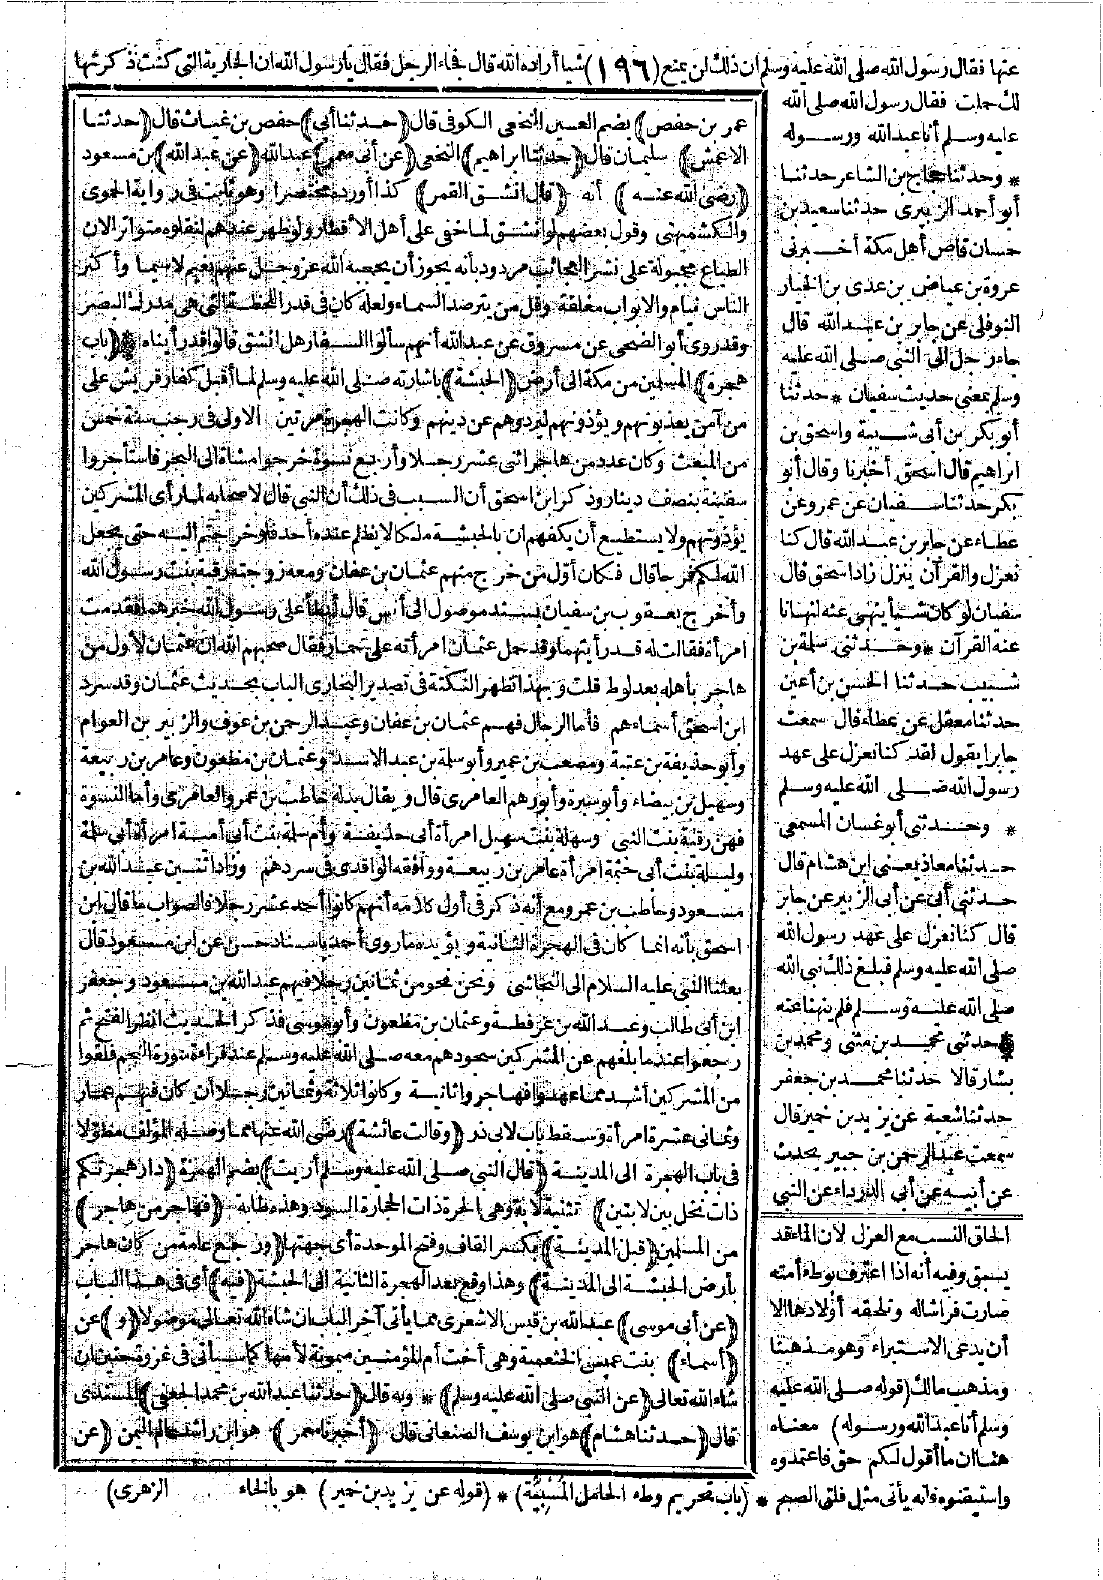 عنها فقال رسول الله صلى الله عليه وسلم ان ذلك لن يمنع (١٩٦) شيا أراده الله قال فجاء الرجل فقال يارسول الله ان الجارية التي كنت ذكرتها
لك حملت فقال رسول الله صلى الله
عليه وسلم أنا عبد الله ورسوله
* وحدثنا حجاج بن الشاعر حدثنا
أبو أحمد الزبيرى حدثنا سعيد بن
حسان قاص أهل مكة أخبرنى
عروة بن عياض بن عدى بن الخيار
النوفلى عن جابر بن عبد الله قال
جاء رجل الى النبي صلى الله عليه
وسلم بمعنى حديث سفيان * حدثنا
أبو بكر بن أبى شيبة واسحق بن
ابراهيم قال اسحق أخبرنا وقال أبو
بكر حدثنا سفيان عن عمرو عن
عطاء عن جابر بن عبد الله قال كنا
نعزل والقرآن ينزل زاد اسحق قال
سفيان لو كان شيأ ينهى عنه لنهانا
عنه القرآن * وحدثنى سلمة بن
شبيب حدثنا الحسن بن أعين
حدثنا معقل عن عطاء قال سمعت
جابرا يقول لقد كنا نعزل على عهد
رسول الله صلى الله عليه وسلم
* وحدثنى أبو غسان المسمعى
حدثنا معاذ يعنى ابن هشام قال
حدثنى أبى عن أبى الزبير عن جابر
قال كنا نعزل على عهد رسول الله
صلى الله عليه وسلم فبلغ ذلك نبى الله
صلى الله عليه وسلم فلم ينهنا عنه
* حدثنى محمد بن مثنى ومحمد بن
بشار قالا حدثنا محمد بن جعفر
حدثنا شعبة عن يزيد بن خمير قال
سمعت عبد الرحمن بن جبير يحدث
عن أبيه عن أبى الدرداء عن النبي
الحاق النسب مع العزل لان الماء قد
يسبق وفيه أنه اذا اعترف بوطء أمته
صارت فراشاله وتلحقه أولادها الا
أن يدعى الاستبراء وهو مذهبنا
ومذهب مالك (قوله صلى الله عليه
وسلم أنا عبد الله ورسوله) معناه
هنا ان ما أقول لكم حق فاعتمدوه
واستيقنوه فانه يأتى مثل فلق الصبح * (باب تحريم وطء الحامل المسبية) * (قوله عن يزيد بن خمير) هو بالخاء
عمر بن حفص) بضم العين النخعى الكوفى قال (حدثنا أبى) حفص بن غياث قال (حدثنا
الاعمش) سليمان قال (حدثنا ابراهيم) النخعى (عن أبى معمر) عبد الله (عن عبد الله) بن مسعود
(رضى الله عنه) أنه (قال انشق القمر) كذا أورده مختصرا وهو ثابت فى رواية الحموى
والكشميهنى وقول بعضهم لو انشق لما خفى على أهل الأقطار ولو ظهر عندهم لنقلوه متواترا لان
الطباع مجبولة على نشر العجائب مردود بأنه يجوز أن يحجبه الله عز وجل عنهم بغيم لاسيما وأكثر
الناس نيام والابواب مغلقة وقل من يترصد السماء ولعله كان فى قدر اللحظة التى هى مدرك البصر
وقد روى أبو الضحى عن مسروق عن عبد الله أنهم سألوا السفار هل انشق قالوا قد رأيناه * (باب
هجرة) المسلمين من مكة الى أرض (الحبشة) باشارته صلى الله عليه وسلم لما أقبل كفار قريش على
من آمن يعذبونهم ويؤذونهم ليردوهم عن دينهم وكانت الهجرة مرتين الاولى فى رجب سنة خمس
من المبعث وكان عدد من هاجر اثنى عشر رجلا وأربع نسوة خرجوا مشاة الى البحر فاستأجروا
سفينة بنصف دينار وذكر ابن اسحق أن السبب فى ذلك أن النبي قال لاصحابه لما رأى المشركين
يؤذونهم ولا يستطيع أن يكفهم ان بالحبشة ملكا لا يظلم عنده أحد فلو خرجتم اليه حتى يجعل
الله لكم فرجا قال فكان أول من خرج منهم عثمان بن عفان ومعه زوجته رقية بنت رسول الله
وأخرج يعقوب بن سفيان بسند موصول الى أنس قال أبطأ على رسول الله خبرهما فقدمت
امرأة فقالت له قد رأيتهما وقد حمل عثمان امرأته على حمار فقال صحبهم الله ان عثمان لأول من
هاجر بأهله بعد لوط قلت وبهذا تظهر النكتة فى تصدير البخارى الباب بحديث عثمان وقد سرد
ابن اسحق أسماءهم فأما الرجال فهم عثمان بن عفان وعبد الرحمن بن عوف والزبير بن العوام
وأبو حذيفة بن عتبة ومصعب بن عمير وأبو سلمة بن عبد الاسد وعثمان بن مظعون وعامر بن ربيعة
وسهيل بن بيضاء وأبو سبرة وأبو رهم العامرى قال ويقال بدله حاطب بن عمرو العامرى وأما النسوة
فهن رقية بنت النبي وسهلة بنت سهيل امرأة أبى حذيفة وأم سلمة بنت أبى أمية امرأة أبى سلمة
وليلى بنت أبى حثمة امرأة عامر بن ربيعة ووافقه الواقدى فى سردهم وزاد اثنين عبد الله بن
مسعود وحاطب بن عمرو مع أنه ذكر فى أول كلامه أنهم كانوا أحد عشر رجلا فالصواب ما قال ابن
اسحق بأنه انما كان فى الهجرة الثانية ويؤيده ما روى أحمد باسناد حسن عن ابن مسعود قال
بعثنا النبي عليه السلام الى النجاشى ونحن نحو من ثمانين رجلا فيهم عبد الله بن مسعود وجعفر
ابن أبى طالب وعبد الله بن عرفطة وعثمان بن مظعون وأبو موسى فذكر الحديث انظر الفتح ثم
رجعوا عندما بلغهم عن المشركين سجودهم معه صلى الله عليه وسلم عند قراءة سورة النجم فلقوا
من المشركين أشد مما عهدوا فهاجروا ثانية وكانوا ثلاثة وثمانين رجلا ان كان فيهم عمار
وثمانى عشرة امرأة وسقط باب لابى ذر (وقالت عائشة) رضى الله عنها مما وصله المؤلف مطولا
فى باب الهجرة الى المدينة (قال النبي صلى الله عليه وسلم أريت) بضم الهمزة (دار هجرتكم
ذات نخل بين لابتين) تثنية لابة وهى الحرة ذات الحجارة السود وهذه طابة (فهاجر من هاجر)
من المسلمين (قبل المدينة) بكسر القاف وفتح الموحدة أى جهتها (ورجع عامة من كان هاجر
بأرض الحبشة الى المدينة) وهذا وقع بعد الهجرة الثانية الى الحبشة (فيه) أى فى هذا الباب
(عن أبى موسى) عبد الله بن قيس الاشعرى مما يأتى آخر الباب ان شاء الله تعالى موصولا (و) عن
(أسماء) بنت عميس الخثعمية وهى أخت أم المؤمنين ميمونة لأمها كما سيأتى فى غزوة حنين ان
شاء الله تعالى (عن النبي صلى الله عليه وسلم) * وبه قال (حدثنا عبد الله بن محمد الجعفى) المسندى
قال (حدثنا هشام) هو ابن يوسف الصنعانى قال (أخبرنا معمر) هو ابن راشد عالم اليمن (عن
الزهرى)